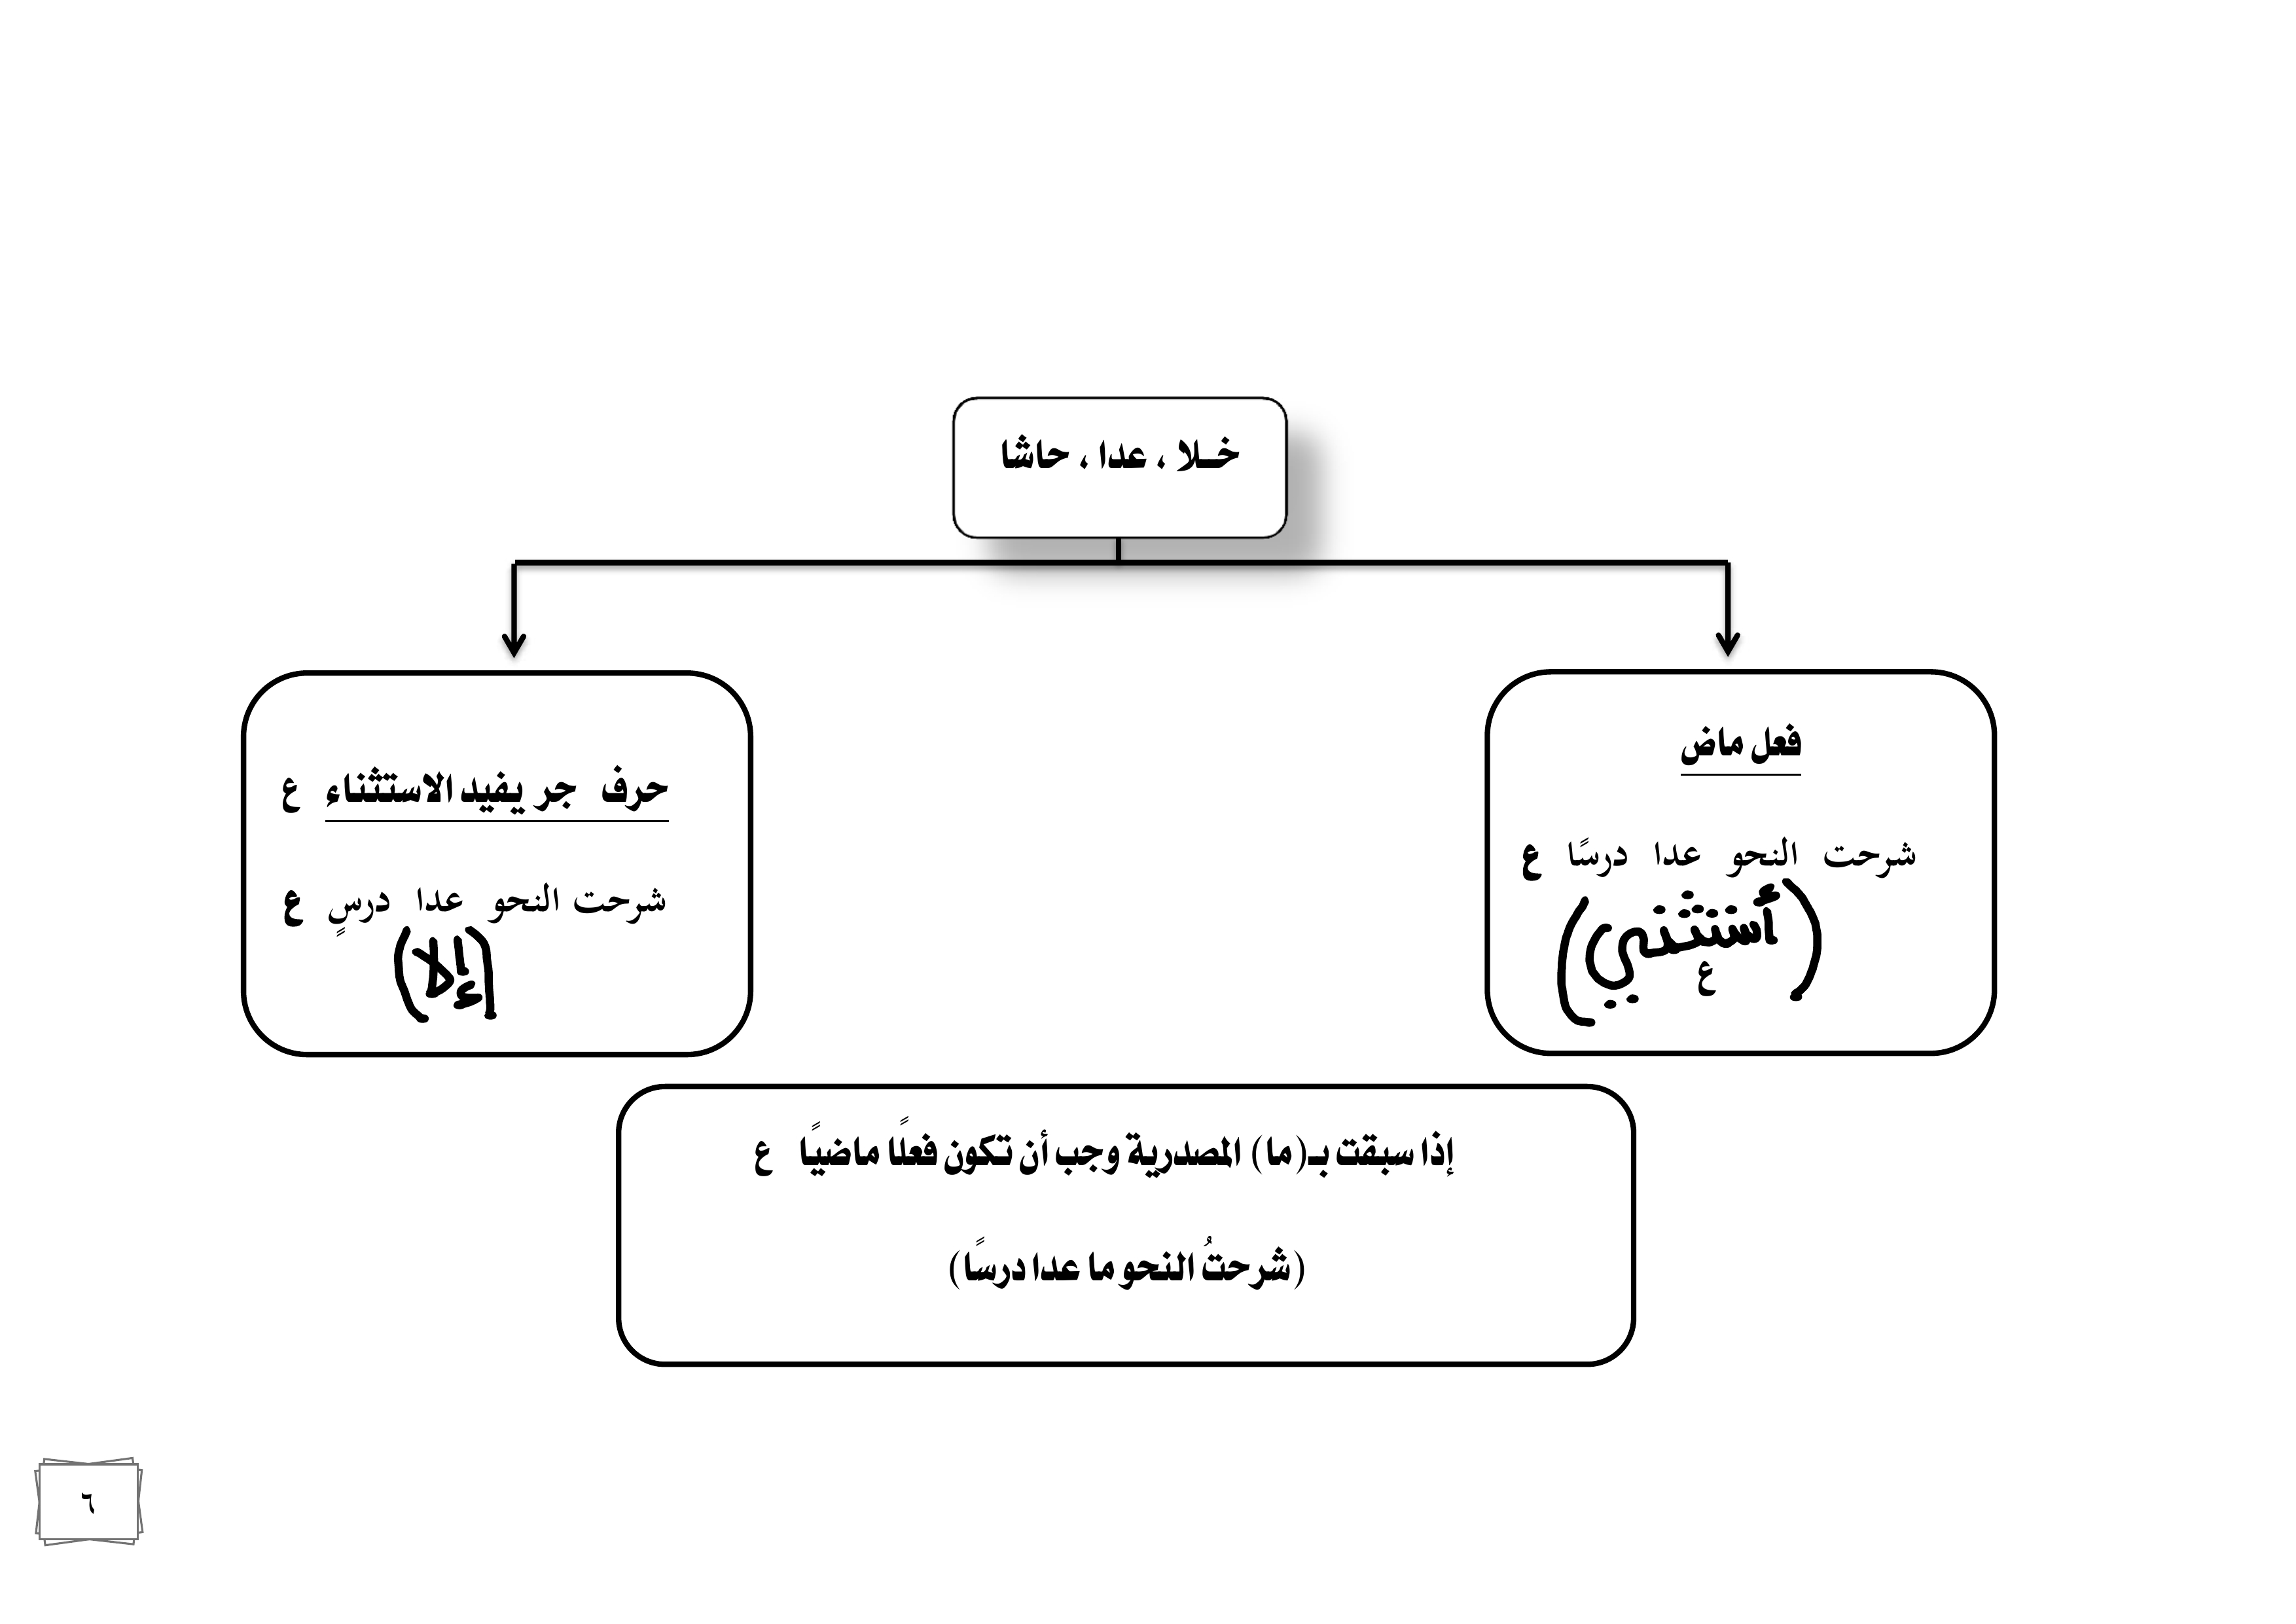 خـلا ، عدا ، حاشا
فعل ماض
شرحت النحو عدا درسًا ع
(أستثني)
ع
حرف جر يفيد الاستثناء ع
شرحت النحو عدا درسٍ ع
(إلا)
إذا سبقت بـ(ما) المصدرية وجب أن تكون فعلًا ماضيًا ع
(شرحتُ النحو ما عدا درسًا)
٦